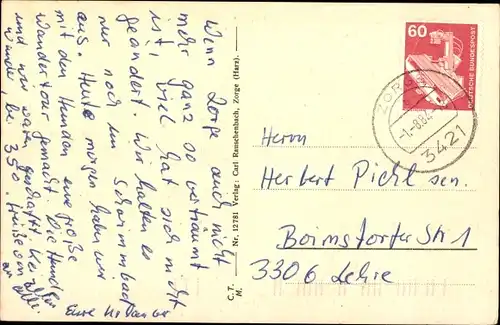 Wenn Zorge auch nicht
mehr ganz so verträumt
ist, viel hat sich nicht
geändert. Wir halten es
nur noch im Schwimmbad
aus. Heute morgen haben wir
mit den Hunden eine große
Wandertour gemacht. Die Hunde
und wir waren geschafft. Kein
Wunder, bei 35°. Grüße von
an alle.
Eure
Nr. 12781 Verlag: Carl Rauschenbach, Zorge (Harz).
C. T.
M.
60
DEUTSCHE BUNDESPOST
ZORGE
-1.-8.84-
3421
Herrn
Herbert Pichl sen.
Boimstorfer Str 1
3306 Lehre